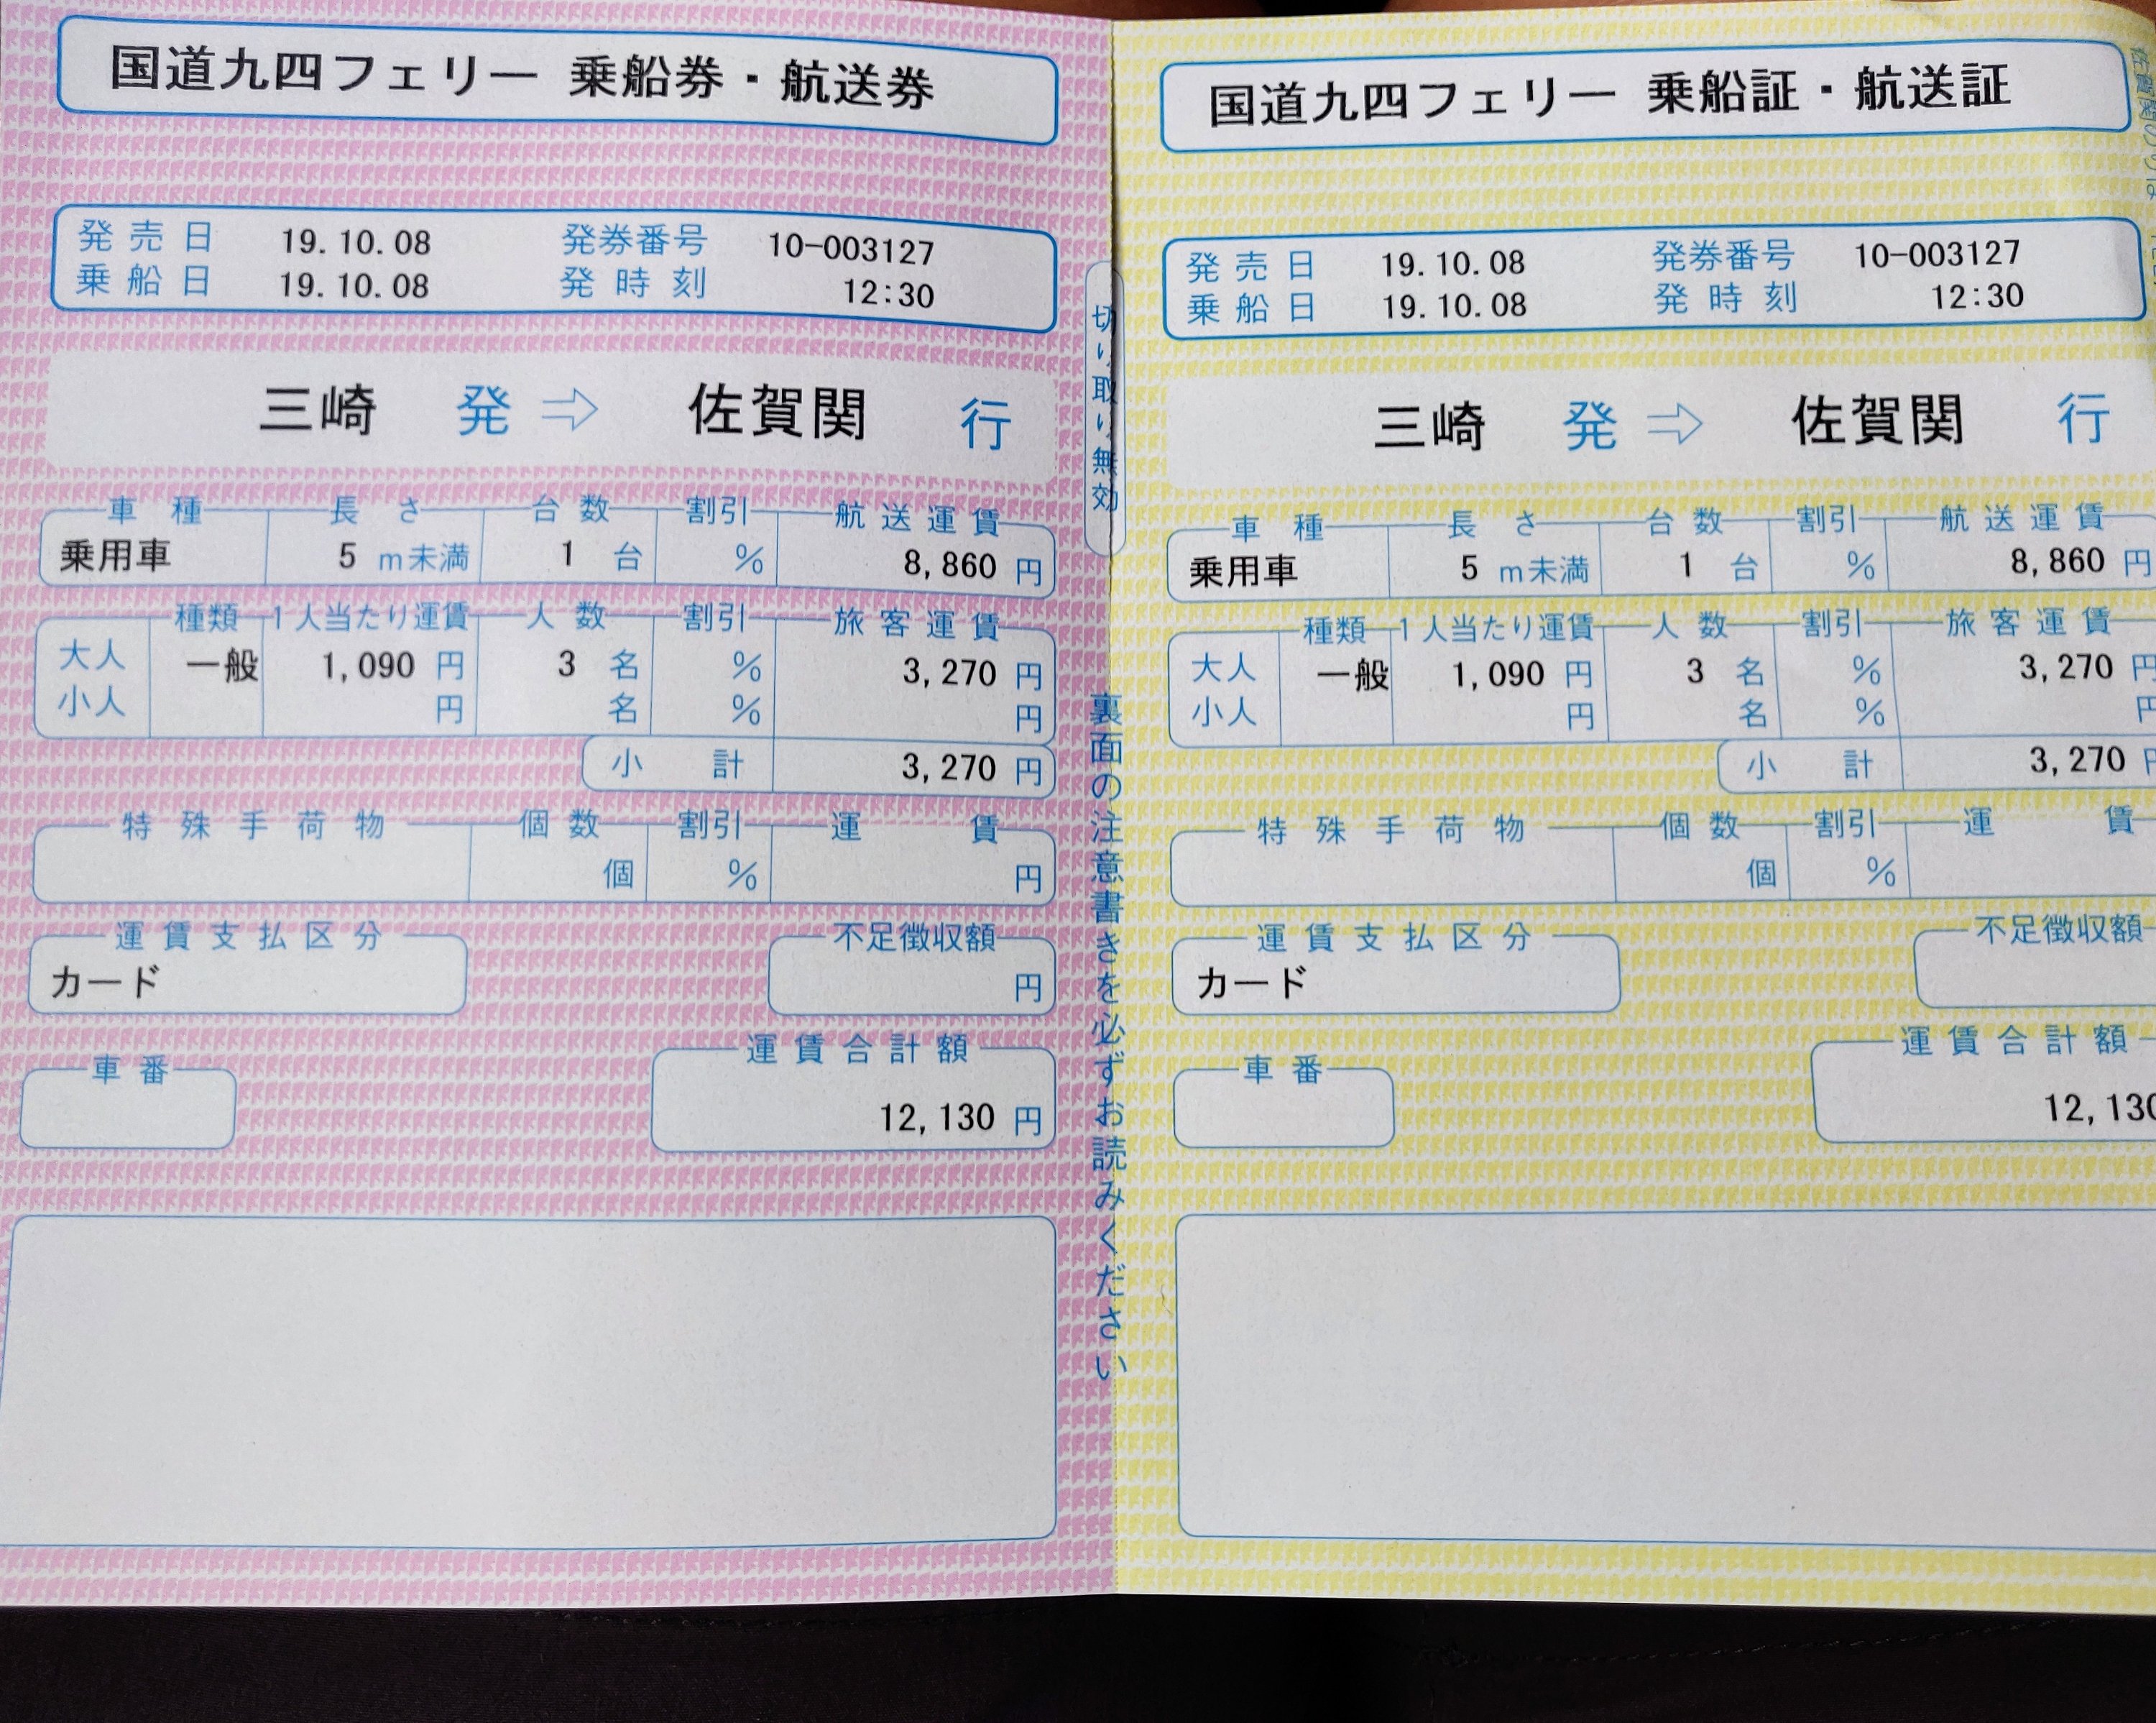 国道九四フェリー 乗船券・航送券
発売日 19.10.08 発券番号 10-003127
乗船日 19.10.08 発時刻 12:30
三崎 発 ⇨ 佐賀関 行
車種 長さ 台数 割引 航送運賃
乗用車 5 m未満 1 台 % 8,860 円
種類 1人当たり運賃 人数 割引 旅客運賃
大人 一般 1,090 円 3 名 % 3,270 円
小人 円 名 % 円
小計 3,270 円
特殊手荷物 個数 割引 運賃
個 % 円
運賃支払区分 不足徴収額
カード 円
車番 運賃合計額
12,130 円
切り取り無効
裏面の注意書きを必ずお読みください
国道九四フェリー 乗船証・航送証
発売日 19.10.08 発券番号 10-003127
乗船日 19.10.08 発時刻 12:30
三崎 発 ⇨ 佐賀関 行
車種 長さ 台数 割引 航送運賃
乗用車 5 m未満 1 台 % 8,860 円
種類 1人当たり運賃 人数 割引 旅客運賃
大人 一般 1,090 円 3 名 % 3,270 円
小人 円 名 % 円
小計 3,270 円
特殊手荷物 個数 割引 運賃
個 %
運賃支払区分 不足徴収額
カード
車番 運賃合計額
12,130